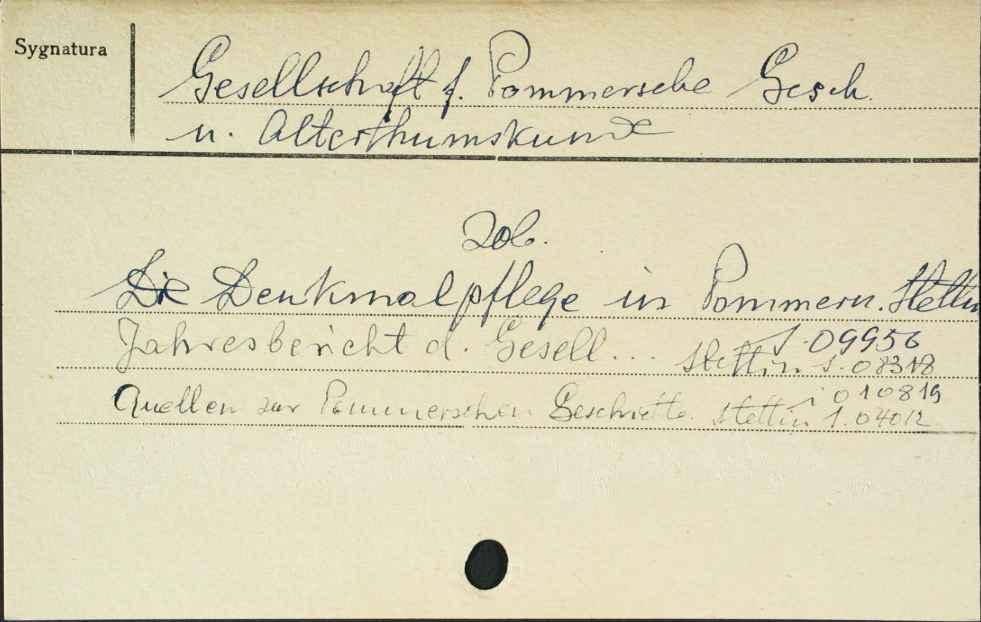 Sygnatura
Gesellschaft f. Pommersche Gesch.
u. Alterthumskunde
Zob.
Die Denkmalpflege in Pommern. Stettin
S. 09956
Jahresbericht d. Gesell... Stettin S. 08318
i 010819
Quellen zur Pommerschen Geschichte. Stettin 1.04012